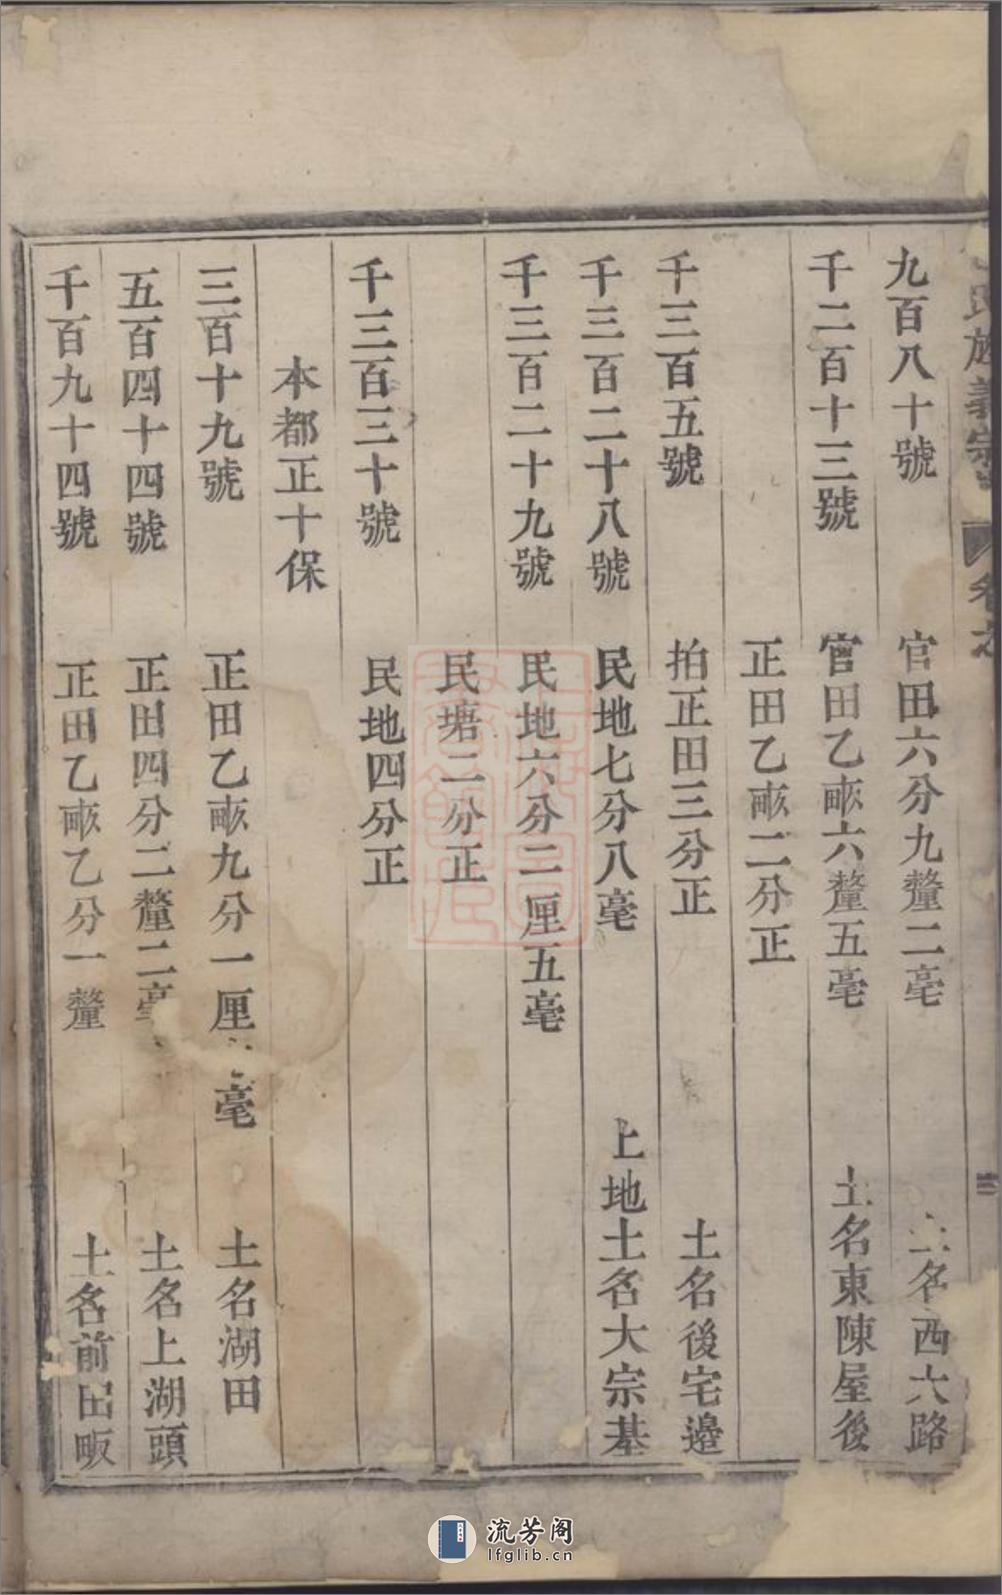 氏族義宗 卷之
九百八十號 官田六分九釐二毫 土名西六路
千二百十三號 官田乙畝六釐五毫 土名東陳屋後
正田乙畝二分正
千三百五號 拍正田三分正 土名後宅邉
千三百二十八號 民地七分八毫 上地土名大宗基
千三百二十九號 民地六分二厘五毫
民塘二分正
千三百三十號 民地四分正
本都正十保
三百十九號 正田乙畝九分一厘毫 土名湖田
五百四十四號 正田四分二釐二毫 土名上湖頭
千百九十四號 正田乙畝乙分一釐 土名前田畈
流芳阁
lfglib.cn